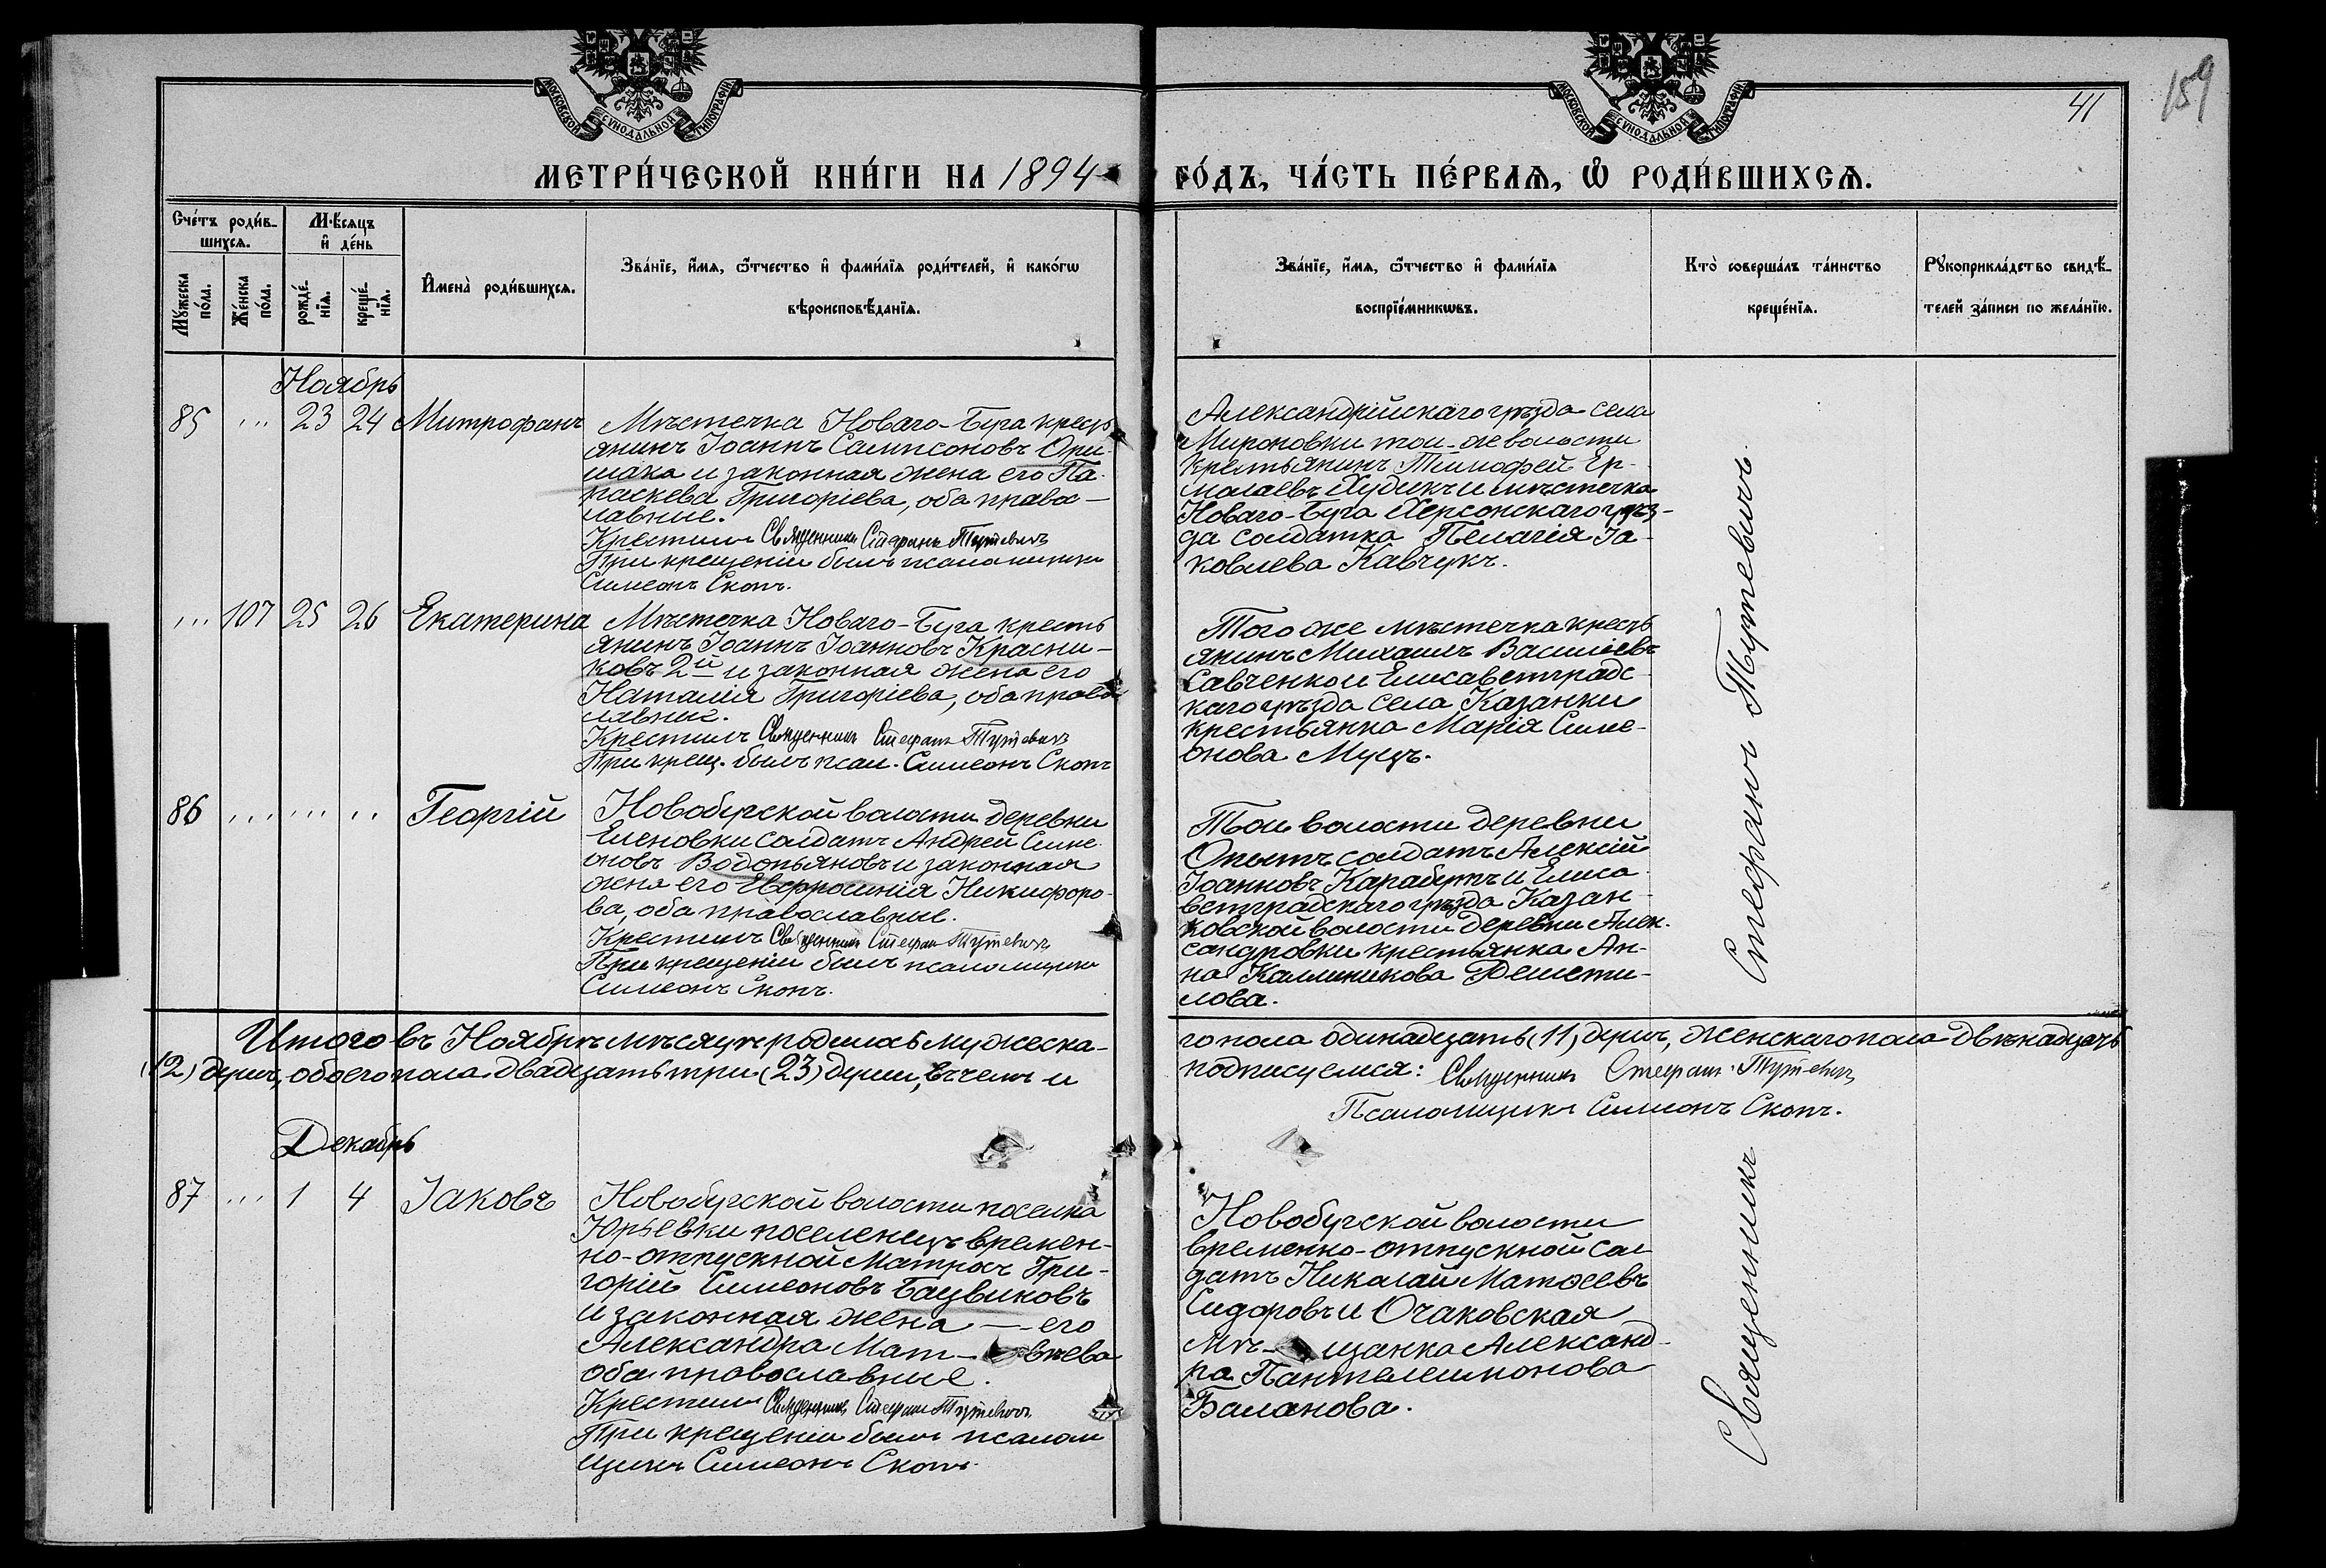 МОСКОВСКОЙ СѴНОДАЛЬНОЙ ТИПОГРАФІИ
МОСКОВСКОЙ СѴНОДАЛЬНОЙ ТИПОГРАФІИ
159
41
МЕТРИ́ЧЕСКОЙ КНИ́ГИ НА 1894
ГО́ДЪ, ЧА́СТЬ ПЕ́РВАѦ, Ѽ РОДИ́ВШИХСѦ.
Сче́тъ роди́в-
шихсѧ.
Мѣ́сяцъ
и҆ де́нь
Мꙋ́жеска
по́ла.
Же́нска
по́ла.
рожде́-
нїѧ.
креще́-
нїѧ.
И҆мена̀ роди́вшихсѧ.
Зва́нїе, и҆́мѧ, ѻ҆́тчество и҆ фами́лїѧ роди́телей, и҆ како́гѡ
вѣроисповѣ́данїѧ.
Зва́нїе, и҆́мѧ, ѻ҆́тчество и҆ фами́лїѧ
воспрїе́мникѡвъ.
Кто̀ соверша́лъ та́инство
креще́нїѧ.
Рꙋкоприкла́дство свидѣ́-
телей за́писи по жела́нїю.
Ноябрь
85 ... 23 24 Митрофанъ
Мѣстечка Новаго-Буга крест
янинъ Іоаннъ Сампсоновъ Ори-
шака и законная жена его Па-
раскева Григоріева, оба правос-
лавные.
Крестилъ Священникъ Стефанъ Тутевичъ
При крещеніи былъ псаломщикъ
Симеонъ Скопъ.
Александрійскаго уѣзда села
Мироновки той-же волости
крестьянинъ Тимофей Ер-
молаевъ Худикъ и мѣстечка
Новаго-Буга Херсонскаго уѣз-
да солдатка Пелагія Іа-
ковлева Кавчукъ.
... 107 25 26 Екатерина
Мѣстечка Новаго-Буга кресть
янинъ Іоаннъ Іоанновъ Красни-
ковъ 2й и законная жена его
Наталія Григоріева, оба право
лавные.
Крестилъ Священникъ Стефанъ Тутевичъ
При крещ. былъ псал. Симеонъ Скопъ
Того же мѣстечка кресть
янинъ Михаилъ Василіевъ
Савченко и Елисаветградс-
каго уѣзда села Казанки
крестьянка Марія Симе-
онова Муцъ.
86 ... ... .. Георгій
Новобугской волости деревни
Еленовки солдатъ Андрей Симе-
оновъ Водопьяновъ и законная
жена его Евфросинія Никифоро-
ва, оба православные.
Крестилъ Священникъ Стефанъ Тутевичъ
При крещеніи былъ псаломщикъ
Симеонъ Скопъ.
Той волости деревни
Опытъ солдатъ Алексій
Іоанновъ Карабутъ и Елиса-
ветградскаго уѣзда Казан-
ковской волости деревни Алек-
сандровки крестьянка Ан-
на Калиникова Решети-
лова.
Стефанъ Тутевичъ
Итого въ Ноябрѣ мѣсяцѣ родилось мужеска-
го пола одинадцать (11) душъ, женскаго пола двѣнадцать
(12) душъ, обоего пола двадцать три (23) души, въ чемъ и
подписуемся: Священникъ Стефанъ Тутевичъ
Псаломщикъ Симеонъ Скопъ.
Декабрь
87 ... 1 4 Іаковъ
Новобугской волости поселка
Юрьевки поселенецъ времен-
но-отпускной Матросъ Гри-
горій Симеоновъ Бацвиковъ
и законная жена — его
Александра Мат- вѣева
оба православные.
Крестилъ Священникъ Стефанъ Тутевичъ
При крещеніи былъ псалом
щикъ Симеонъ Скопъ.
Новобугской волости
временно-отпускной сол-
датъ Николай Матѳеевъ
Сидоровъ и Очаковская
мѣ- щанка Александ-
ра Пантелеимонова
Баланова.
Священникъ